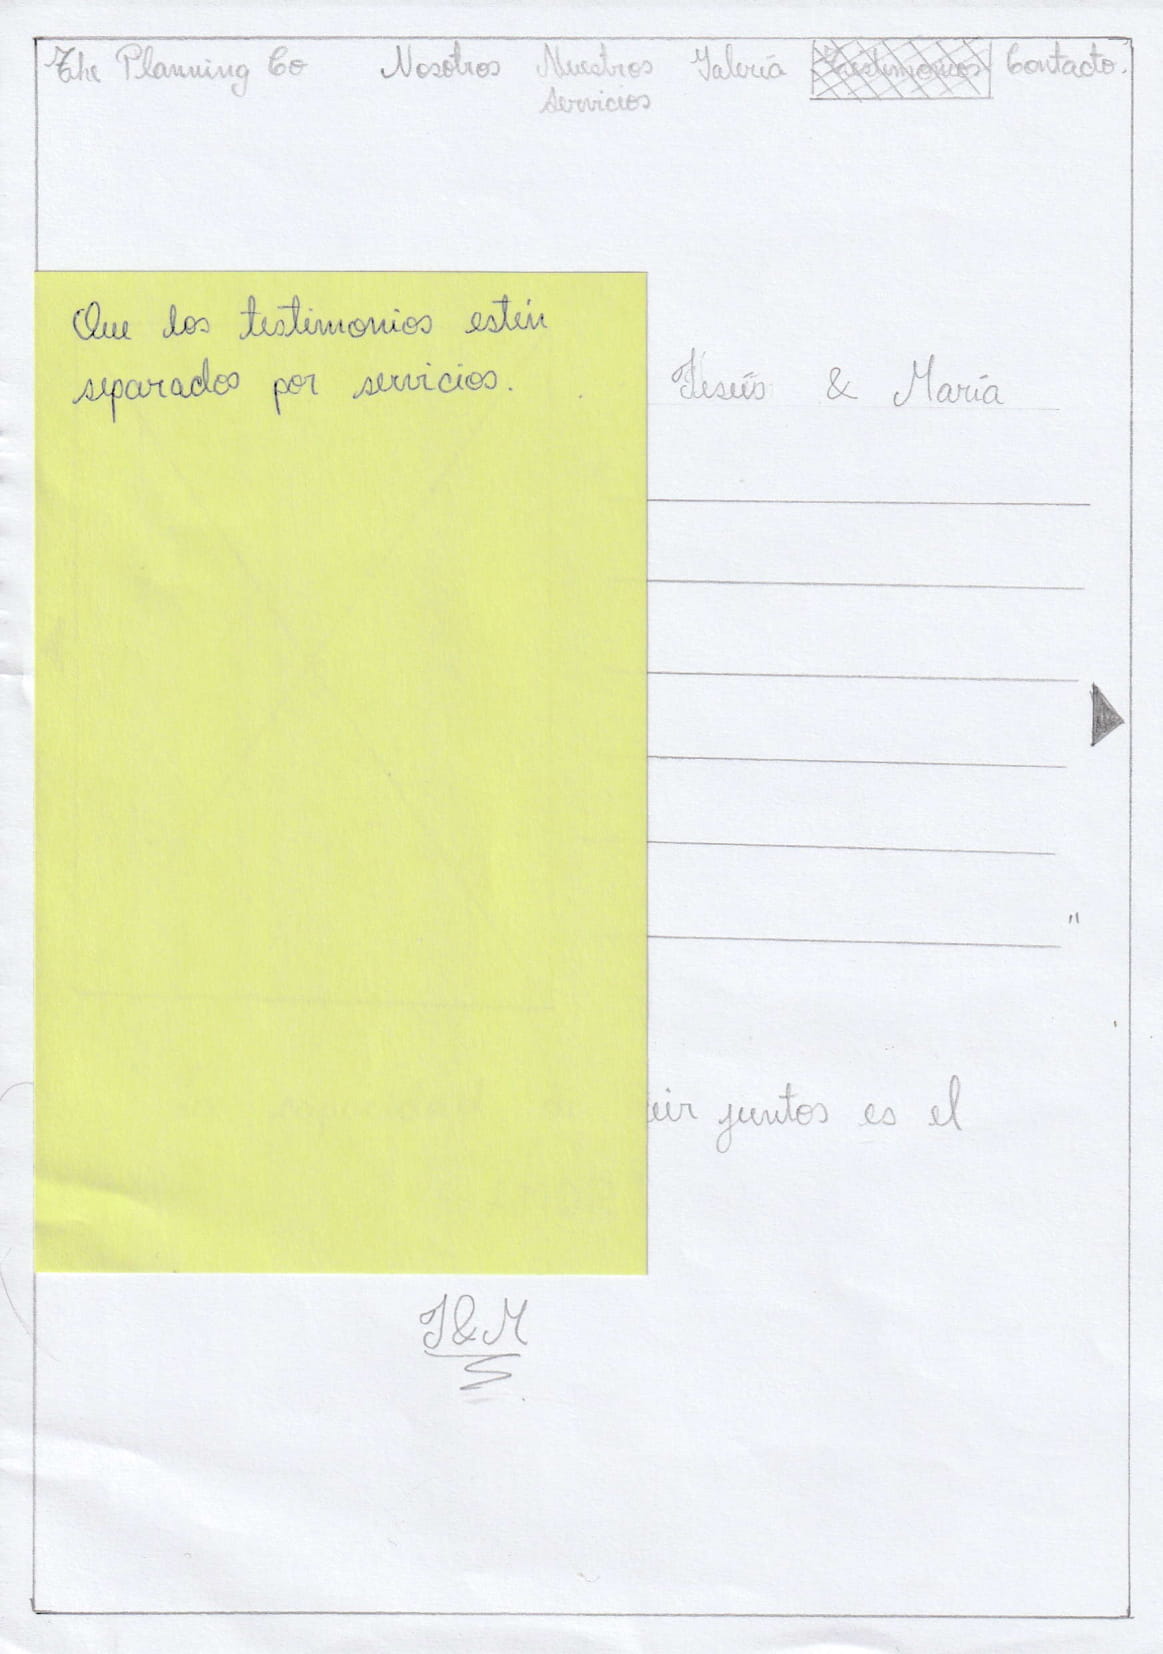 The Planning Co Nosotros Nuestros Servicios Galería Testimonios Contacto.
Que los testimonios estén
separados por servicios.
Jesús & María
"
juntos es el
J&M